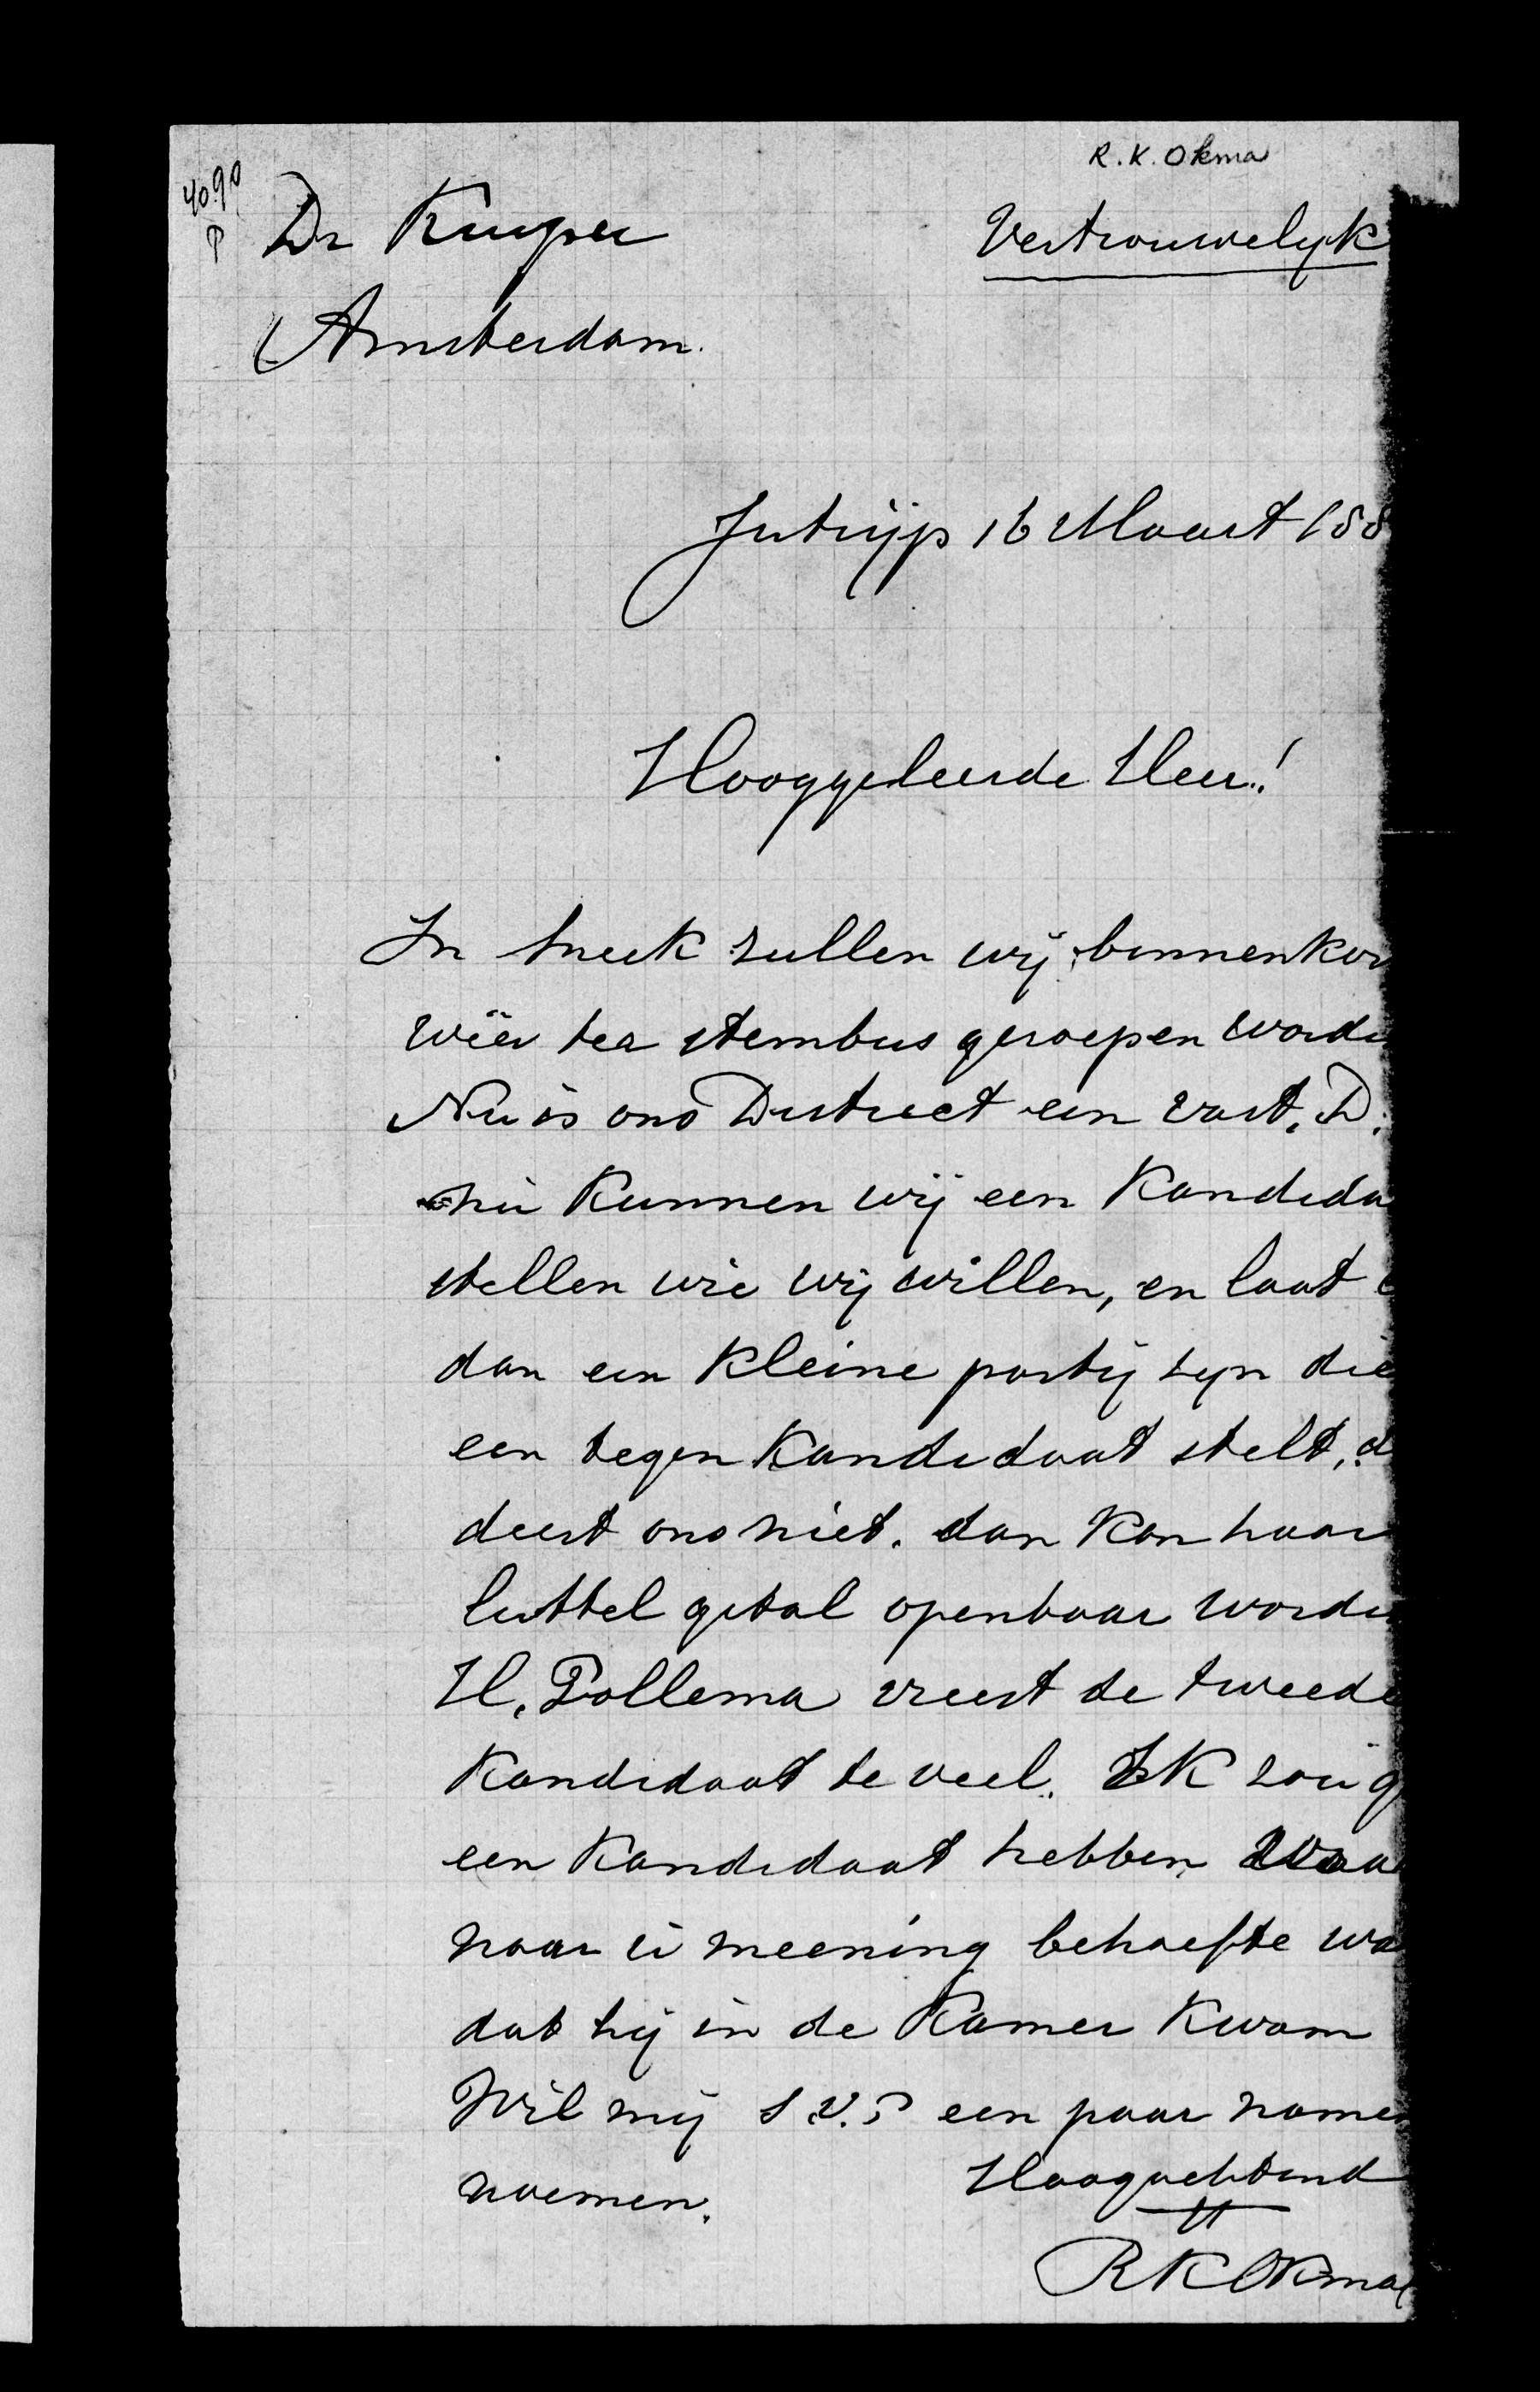 R. K. Okma
4090
P
Dr Kuyper
Vertrouwelyk
Amsterdam.
Jutrijp 16 Maart 188
Hooggeleerde Heer!
In Sneek zullen wij binnenkor
wëer ter stembus geroepen worde
Nu is ons District een vast. D.
nu kunnen wij een Kandida
stellen wie wij willen, en laat e
dan een kleine partij zyn die
een tegen Kandidaat stelt, d
deert ons niet. dan kan haar
luttel getal openbaar worde
H. Pollema vreest de tweede
Kandidaat te veel. Ik zou g
een Kandidaat hebben waa
naar ú meening behoefte wa
dat hij in de Kamer kwam
Wil mij S.V.P een paar namen
noemen.
Hoogachtend
RKOkma